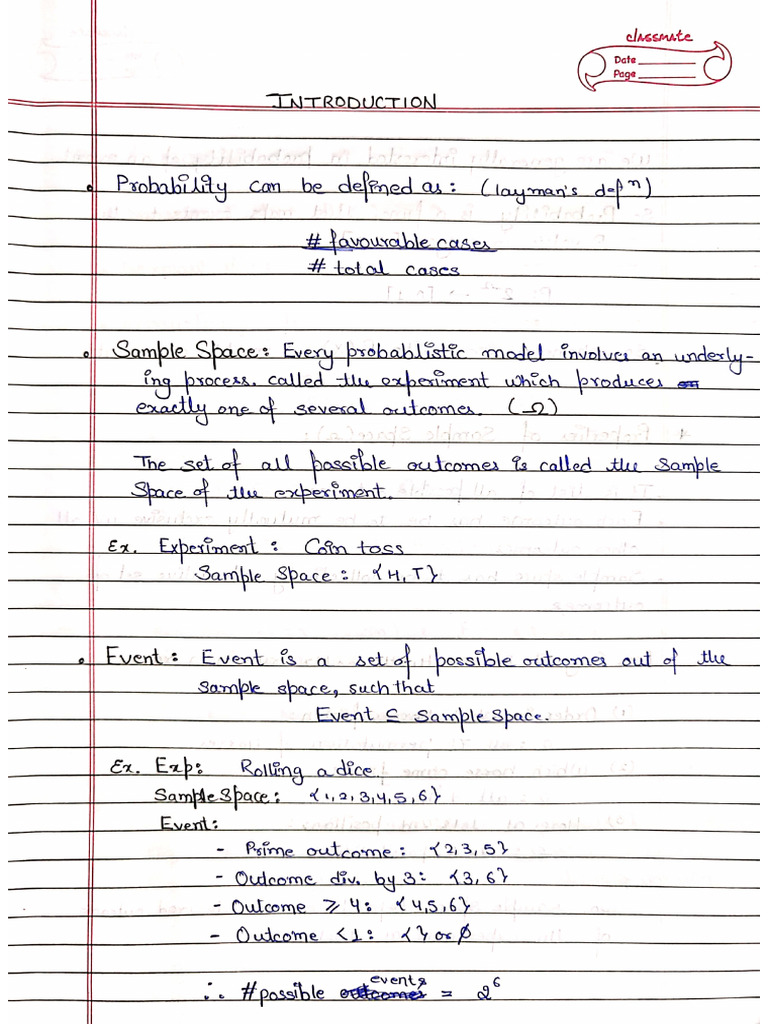 classmate
Date
Page
INTRODUCTION
• Probability can be defined as: (layman's defⁿ)
# favourable cases
# total cases
• Sample Space: Every probablistic model involves an underly-
ing process. called the experiment which produces
exactly one of several outcomes. (Ω)
The set of all possible outcomes is called the sample
space of the experiment.
Ex. Experiment: Coin toss
Sample Space: {H, T}
• Event: Event is a set of possible outcomes out of the
sample space, such that
Event ⊆ Sample Space.
Ex. Exp: Rolling a dice.
Sample Space: {1,2,3,4,5,6}
Event:
- Prime outcome: {2,3,5}
- Outcome div. by 3: {3,6}
- Outcome ⩾ 4: {4,5,6}
- Outcome < 1: {} or ∅
∴ #possible events = 2⁶